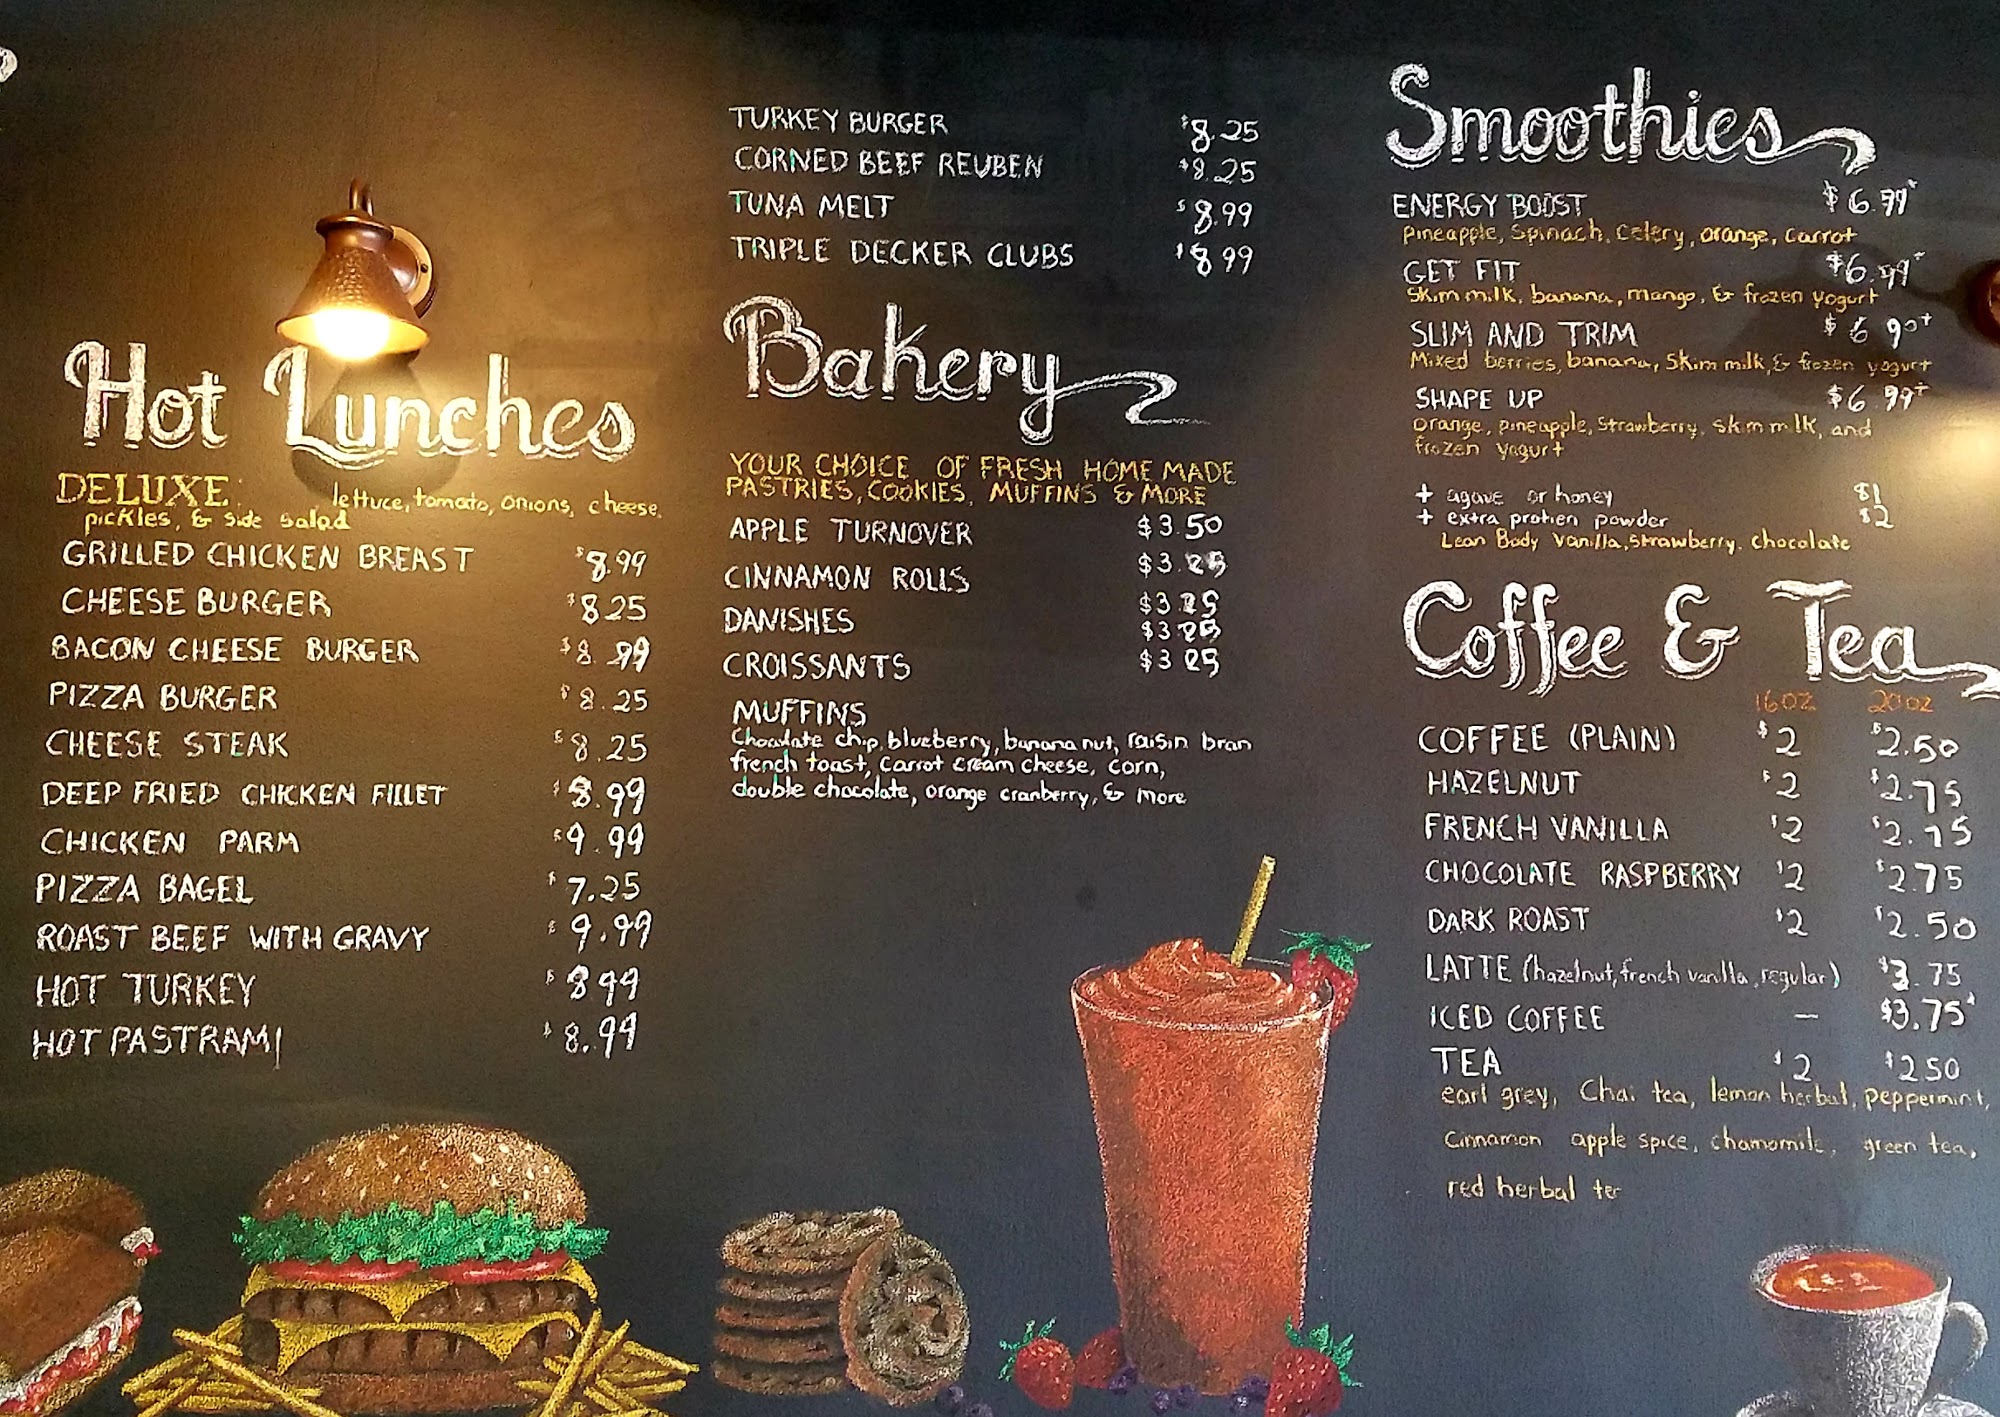 Hot Lunches
DELUXE: lettuce, tomato, onions, cheese,
pickles, & side salad
GRILLED CHICKEN BREAST $8.99
CHEESE BURGER $8.25
BACON CHEESE BURGER $8.99
PIZZA BURGER $8.25
CHEESE STEAK $8.25
DEEP FRIED CHICKEN FILLET $8.99
CHICKEN PARM $9.99
PIZZA BAGEL $7.25
ROAST BEEF WITH GRAVY $9.99
HOT TURKEY $8.99
HOT PASTRAMI $8.99
TURKEY BURGER $8.25
CORNED BEEF REUBEN $8.25
TUNA MELT $8.99
TRIPLE DECKER CLUBS $8.99
Bakery
YOUR CHOICE OF FRESH HOME MADE
PASTRIES, COOKIES, MUFFINS & MORE
APPLE TURNOVER $3.50
CINNAMON ROLLS $3.25
DANISHES $3.25
$3.25
CROISSANTS $3.25
MUFFINS
Chocolate chip, blueberry, banana nut, raisin bran
french toast, Carrot Cream cheese, corn,
double chocolate, orange cranberry, & more
Smoothies
ENERGY BOOST $6.99+
pineapple, Spinach, Celery, orange, Carrot
GET FIT $6.99+
Skim milk, banana, mango, & frozen yogurt
SLIM AND TRIM $6.90+
Mixed berries, banana, Skim milk, & frozen yogurt
SHAPE UP $6.99+
Orange, pineapple, Strawberry, skim milk, and
frozen yogurt
+ agave or honey $1
+ extra protien powder $2
Lean Body Vanilla, Strawberry, chocolate
Coffee & Tea
16 OZ 20 OZ
COFFEE (PLAIN) $2 $2.50
HAZELNUT $2 $2.75
FRENCH VANILLA $2 $2.75
CHOCOLATE RASPBERRY $2 $2.75
DARK ROAST $2 $2.50
LATTE (hazelnut, french vanilla, regular) $3.75
ICED COFFEE — $3.75
TEA $2 $2.50
earl grey, Chai tea, lemon herbal, peppermint,
Cinnamon apple spice, chamomile, green tea,
red herbal te